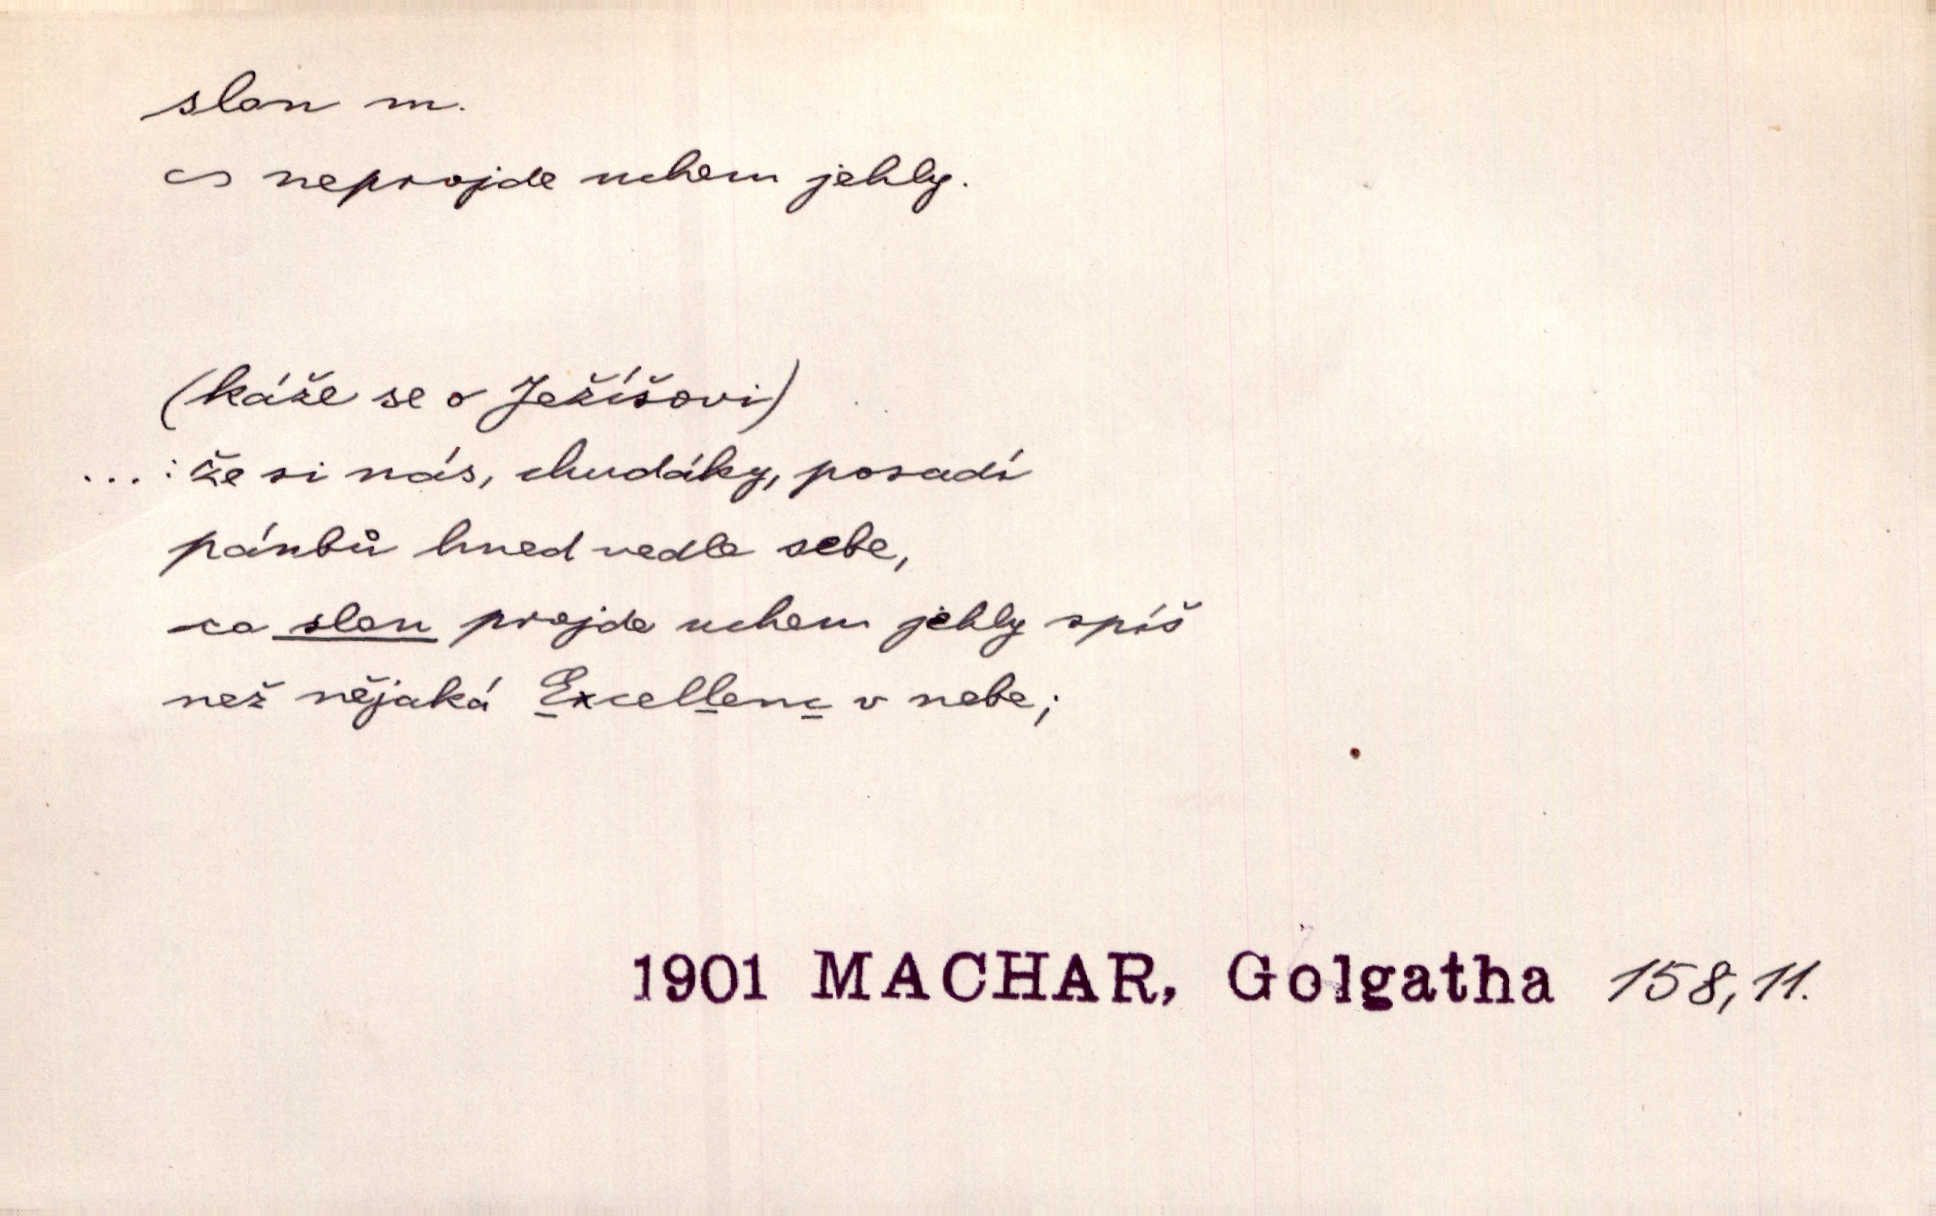 slon m.
∽ neprojde uchem jehly.
(káže se o Ježíšovi)
...: že si nás, chudáky, posadí
pánbů hned vedle sebe,
co slon projde uchem jehly spíš
než nějaká Excellenc v nebe;
1901 MACHAR, Golgatha 158,11.